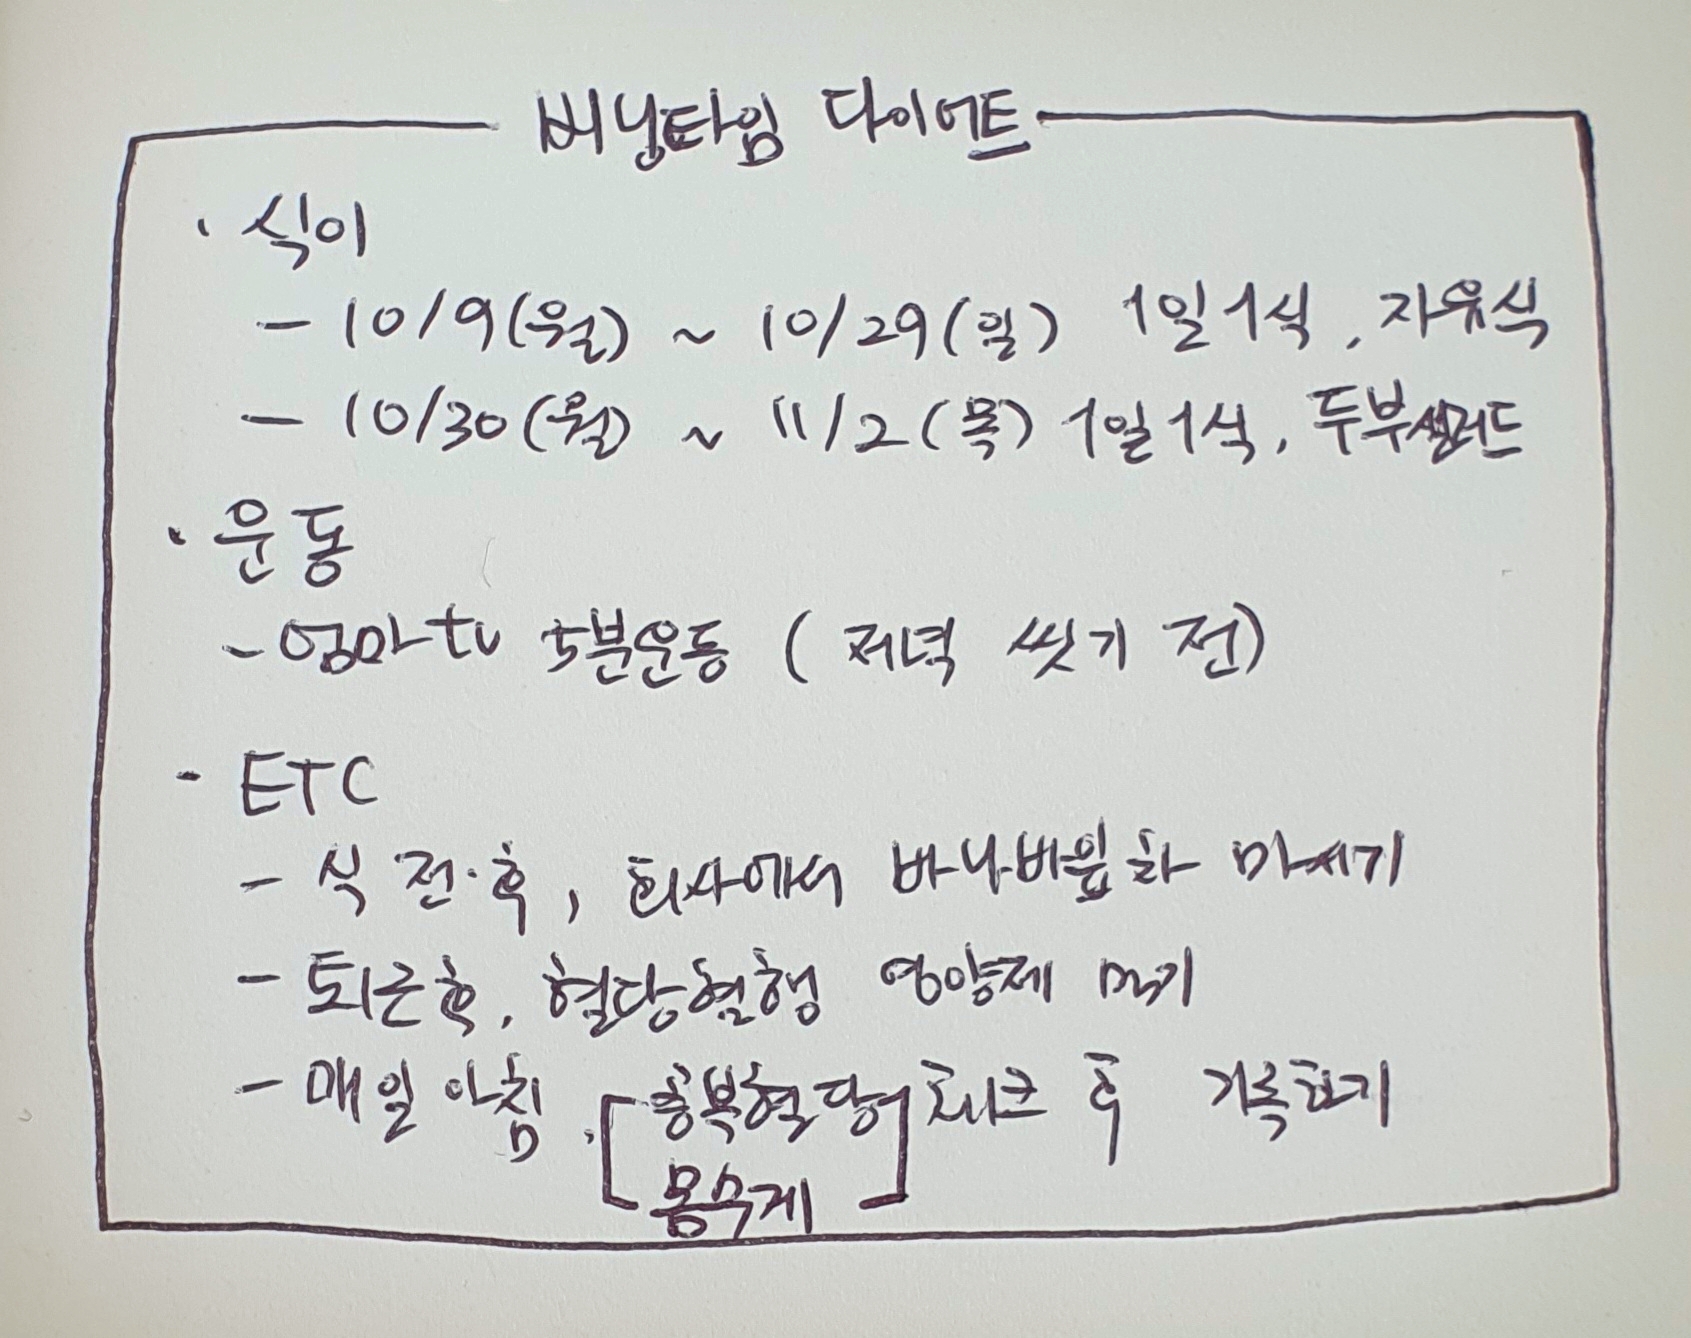 버닝타임 다이어트
· 식이
- 10/9(월) ~ 10/29(일) 1일1식, 자유식
- 10/30(월) ~ 11/2(목) 1일1식, 두부샐러드
· 운동
- 엄마tv 5분운동 (저녁 씻기 전)
- ETC
- 식 전·후, 회사에서 바나바잎차 마시기
- 퇴근후, 혈당혈행 영양제 먹기
- 매일 아침, [공복혈당] 체크 후 기록하기
몸무게